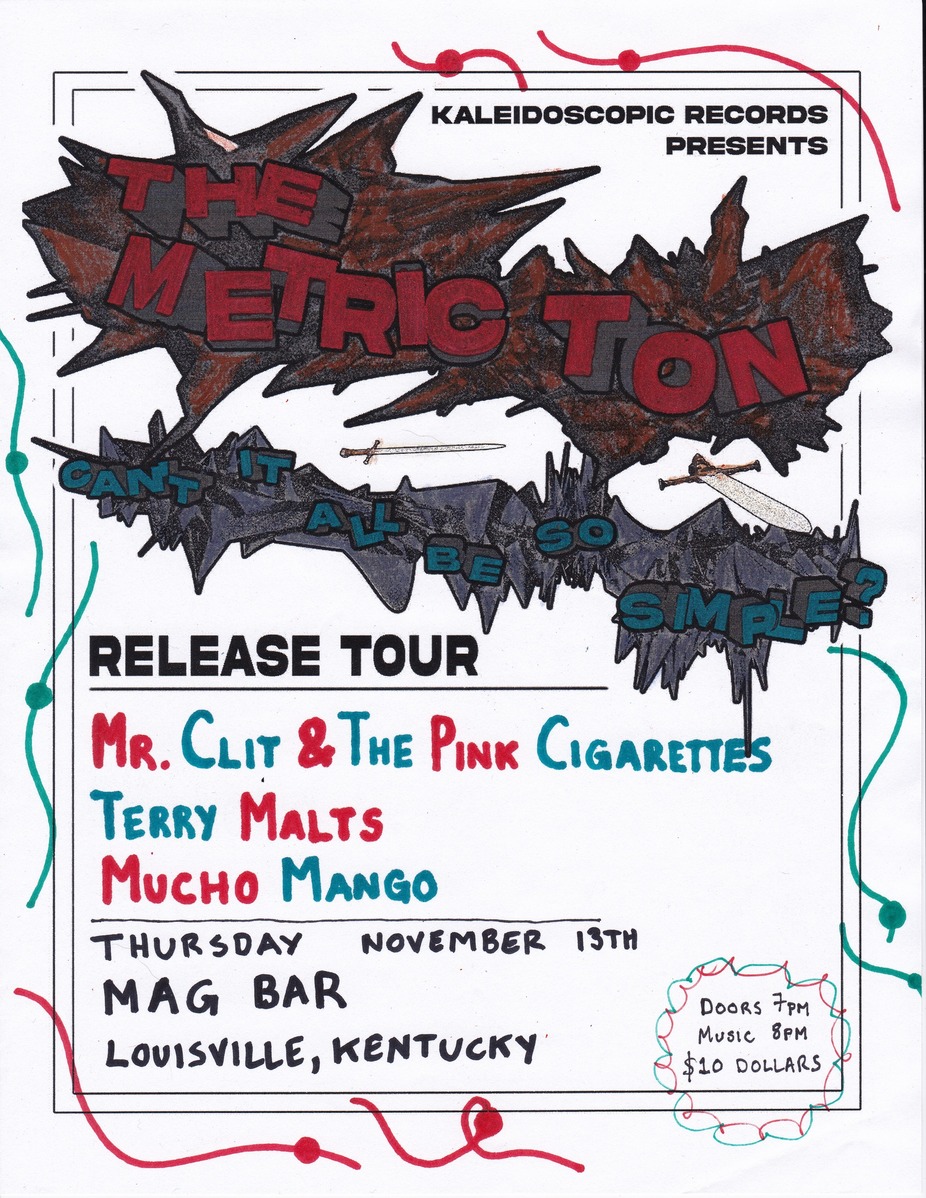 KALEIDOSCOPIC RECORDS
PRESENTS
THE
METRIC TON
CAN'T IT
ALL BE SO
SIMPLE?
RELEASE TOUR
MR. CLIT & THE PINK CIGARETTES
TERRY MALTS
MUCHO MANGO
THURSDAY NOVEMBER 13TH
MAG BAR
LOUISVILLE, KENTUCKY
DOORS 7PM
MUSIC 8PM
$10 DOLLARS